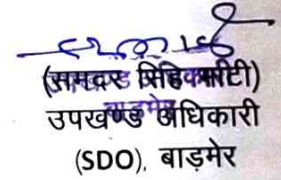 (समदर सिंह भाटी)
उपखण्ड अधिकारी
(SDO), बाड़मेर